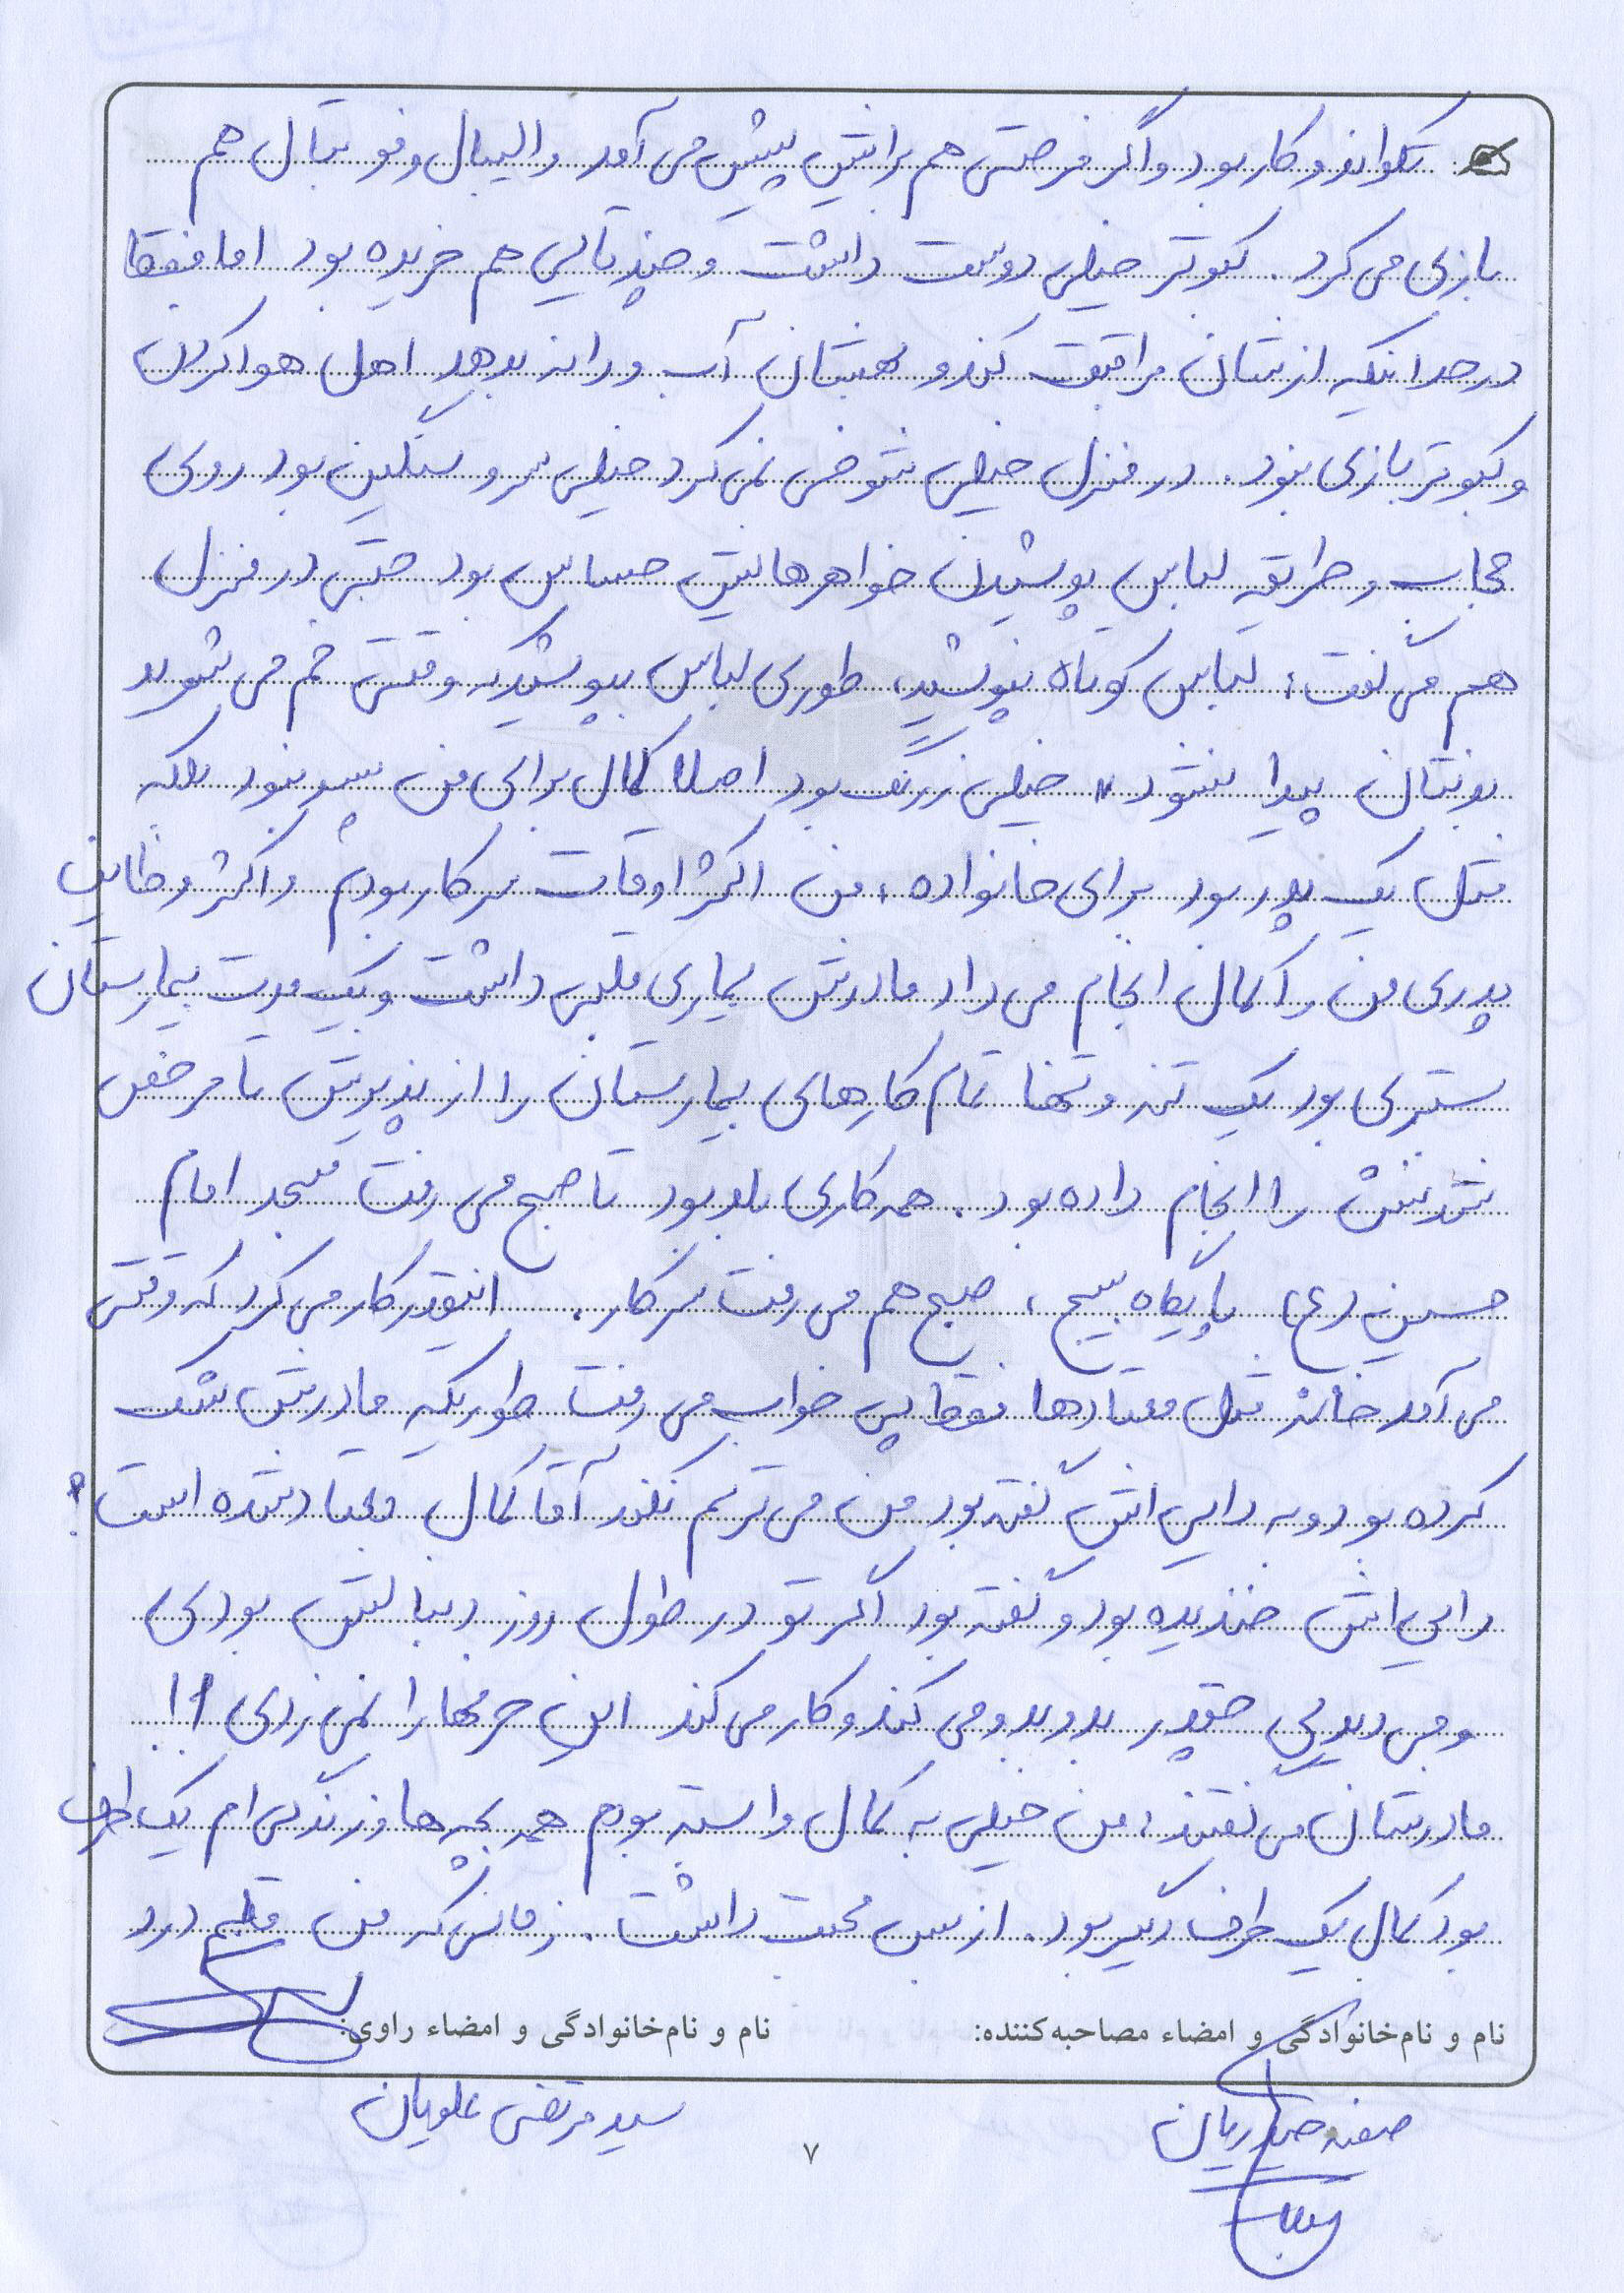 تکواندو کار بود و اگر فرصتی هم برایش پیش می آمد والیبال و فوتبال هم
بازی می کرد. کبوتر خیلی دوست داشت و چند تایی هم خریده بود اما فقط
در حد اینکه ازشان مراقبت کند و بهشان آب و دانه بدهد اهل هوا کردن
و کبوتر بازی نبود. در منزل خیلی شوخی نمی کرد خیلی سر و سنگین بود روی
حجاب و طریقه لباس پوشیدن خواهرهایش حساس بود حتی در منزل
هم می گفت: لباس کوتاه نپوشید، طوری لباس بپوشید که وقتی خم می شوید
بدنتان پیدا نشود» خیلی زرنگ بود اصلا کمال برای من پسر نبود بلکه
مثل یک پدر بود برای خانواده، من اکثر اوقات سر کار بودم و اکثر وظایف
پدری من را کمال انجام می داد مادرش بیماری قلبی داشت و یک مدت بیمارستان
بستری بود یک تنه و تنها تمام کارهای بیمارستان را از پذیرش تا مرخص
شدنش را انجام داده بود. همه کاری بلد بود تا صبح می رفت مسجد امام
حسین (ع) پایگاه بسیج، صبح هم می رفت سر کار. انیقدر کار می کرد که وقتی
می آمد خانه مثل معتادها فقط پی خواب می رفت طوریکه مادرش شک
کرده بود و به دایی اش گفته بود من می ترسم نکند آقا کمال معتاد شده است؟
دایی اش خندیده بود و گفته بود اگر تو در طول روز دنبالش بودی
و می دیدی چقدر بدو بدو می کند و کار می کند این حرفها را نمی زدی!!
مادرشان می گفتند: من خیلی به کمال وابسته بودم همه بچه ها و زندگی ام یک طرف
بود کمال یک طرف دیگر بود. از بس محبت داشت. زمانی که من قلبم درد
نام و نام‌خانوادگی و امضاء مصاحبه‌کننده: نام و نام‌خانوادگی و امضاء راوی:
حیدریان سید مرتضی علویان
۷